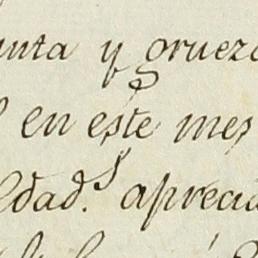 unta y grueza
en este mes
edad.s aprecia